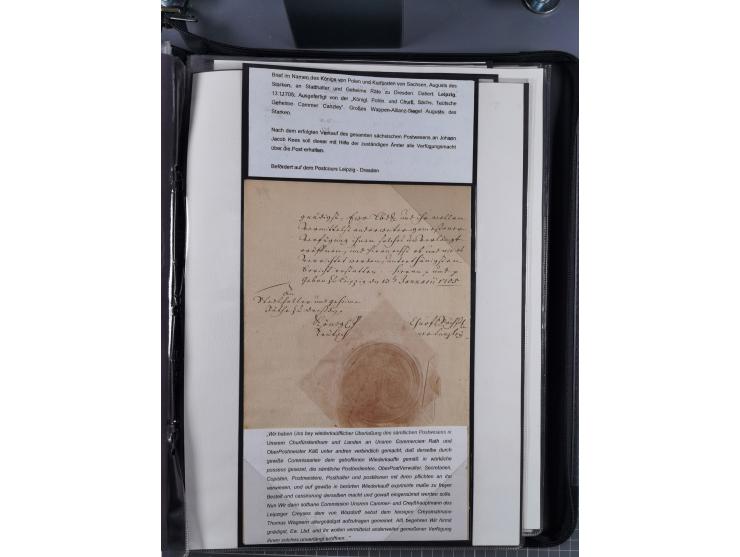 Brief im Namen des Königs von Polen und Kurfürsten von Sachsen, Augusts des
Starken, an Statthalter und Geheime Räte zu Dresden. Datiert Leipzig,
13.1.1705; Ausgefertigt von der „Königl. Polln. und Churfl. Sächs. Teutsche
Geheime- Cammer Canzley". Großes Wappen-Allianz-Siegel Augusts des
Starken.
Nach dem erfolgten Verkauf des gesamten sächsischen Postwesens an Johann
Jacob Kees soll dieser mit Hilfe der zuständigen Ämter alle Verfügungsmacht
über die Post erhalten.
Befördert auf dem Postcours Leipzig - Dresden
gnädigst, Ew. Lbd. und ihr wollen
vermittelst anderweiter gemeßener
Verfügung
eröffnen, und
verrichtet worden, unterthänigsten
Bericht erstatten.
Geben zu Leipzig den 13 Januarii 1705
An
Statthalter und geheime
Räthe zu Dresden
„Wir haben Uns bey wiederkäufflicher Überlaßung des sämtlichen Postwesens in
Unsrem Churfürstenthum und Landen an Unsren Commercien Rath und
OberPostmeister Käß unter andren verbindlich gemacht, daß derselbe durch
gewiße Commissarien dem getroffenen Wiederkauffe gemäß in würkliche
possess gesezet, die sämtliche Postbedienten, OberPostVerwalter, Secretarien,
Copisten, Postmeistere, Posthalter und postillonen mit ihren pflichten an ihn
verwiesen, und auf gewiße in berürten Wiederkauff exprimirte maße zu freyer
Bestell und censirung derselben macht und gewalt eingeraumet werden solle.
Nun Wir dann sothane Commission Unsrem Cammer- und Creyßhauptmann des
Leipziger Creyses dem von Wazdorff nebst dem hiesigen Creysamtmann
Thomas Wagnern allergnädigst aufzutragen gemeinet. Alß begehren Wir hirmit
gnädigst, Ew. Lbd. und ihr wollen vermittelst anderweiter gemeßener Verfügung
ihnen solches unverlängt eröffnen..."